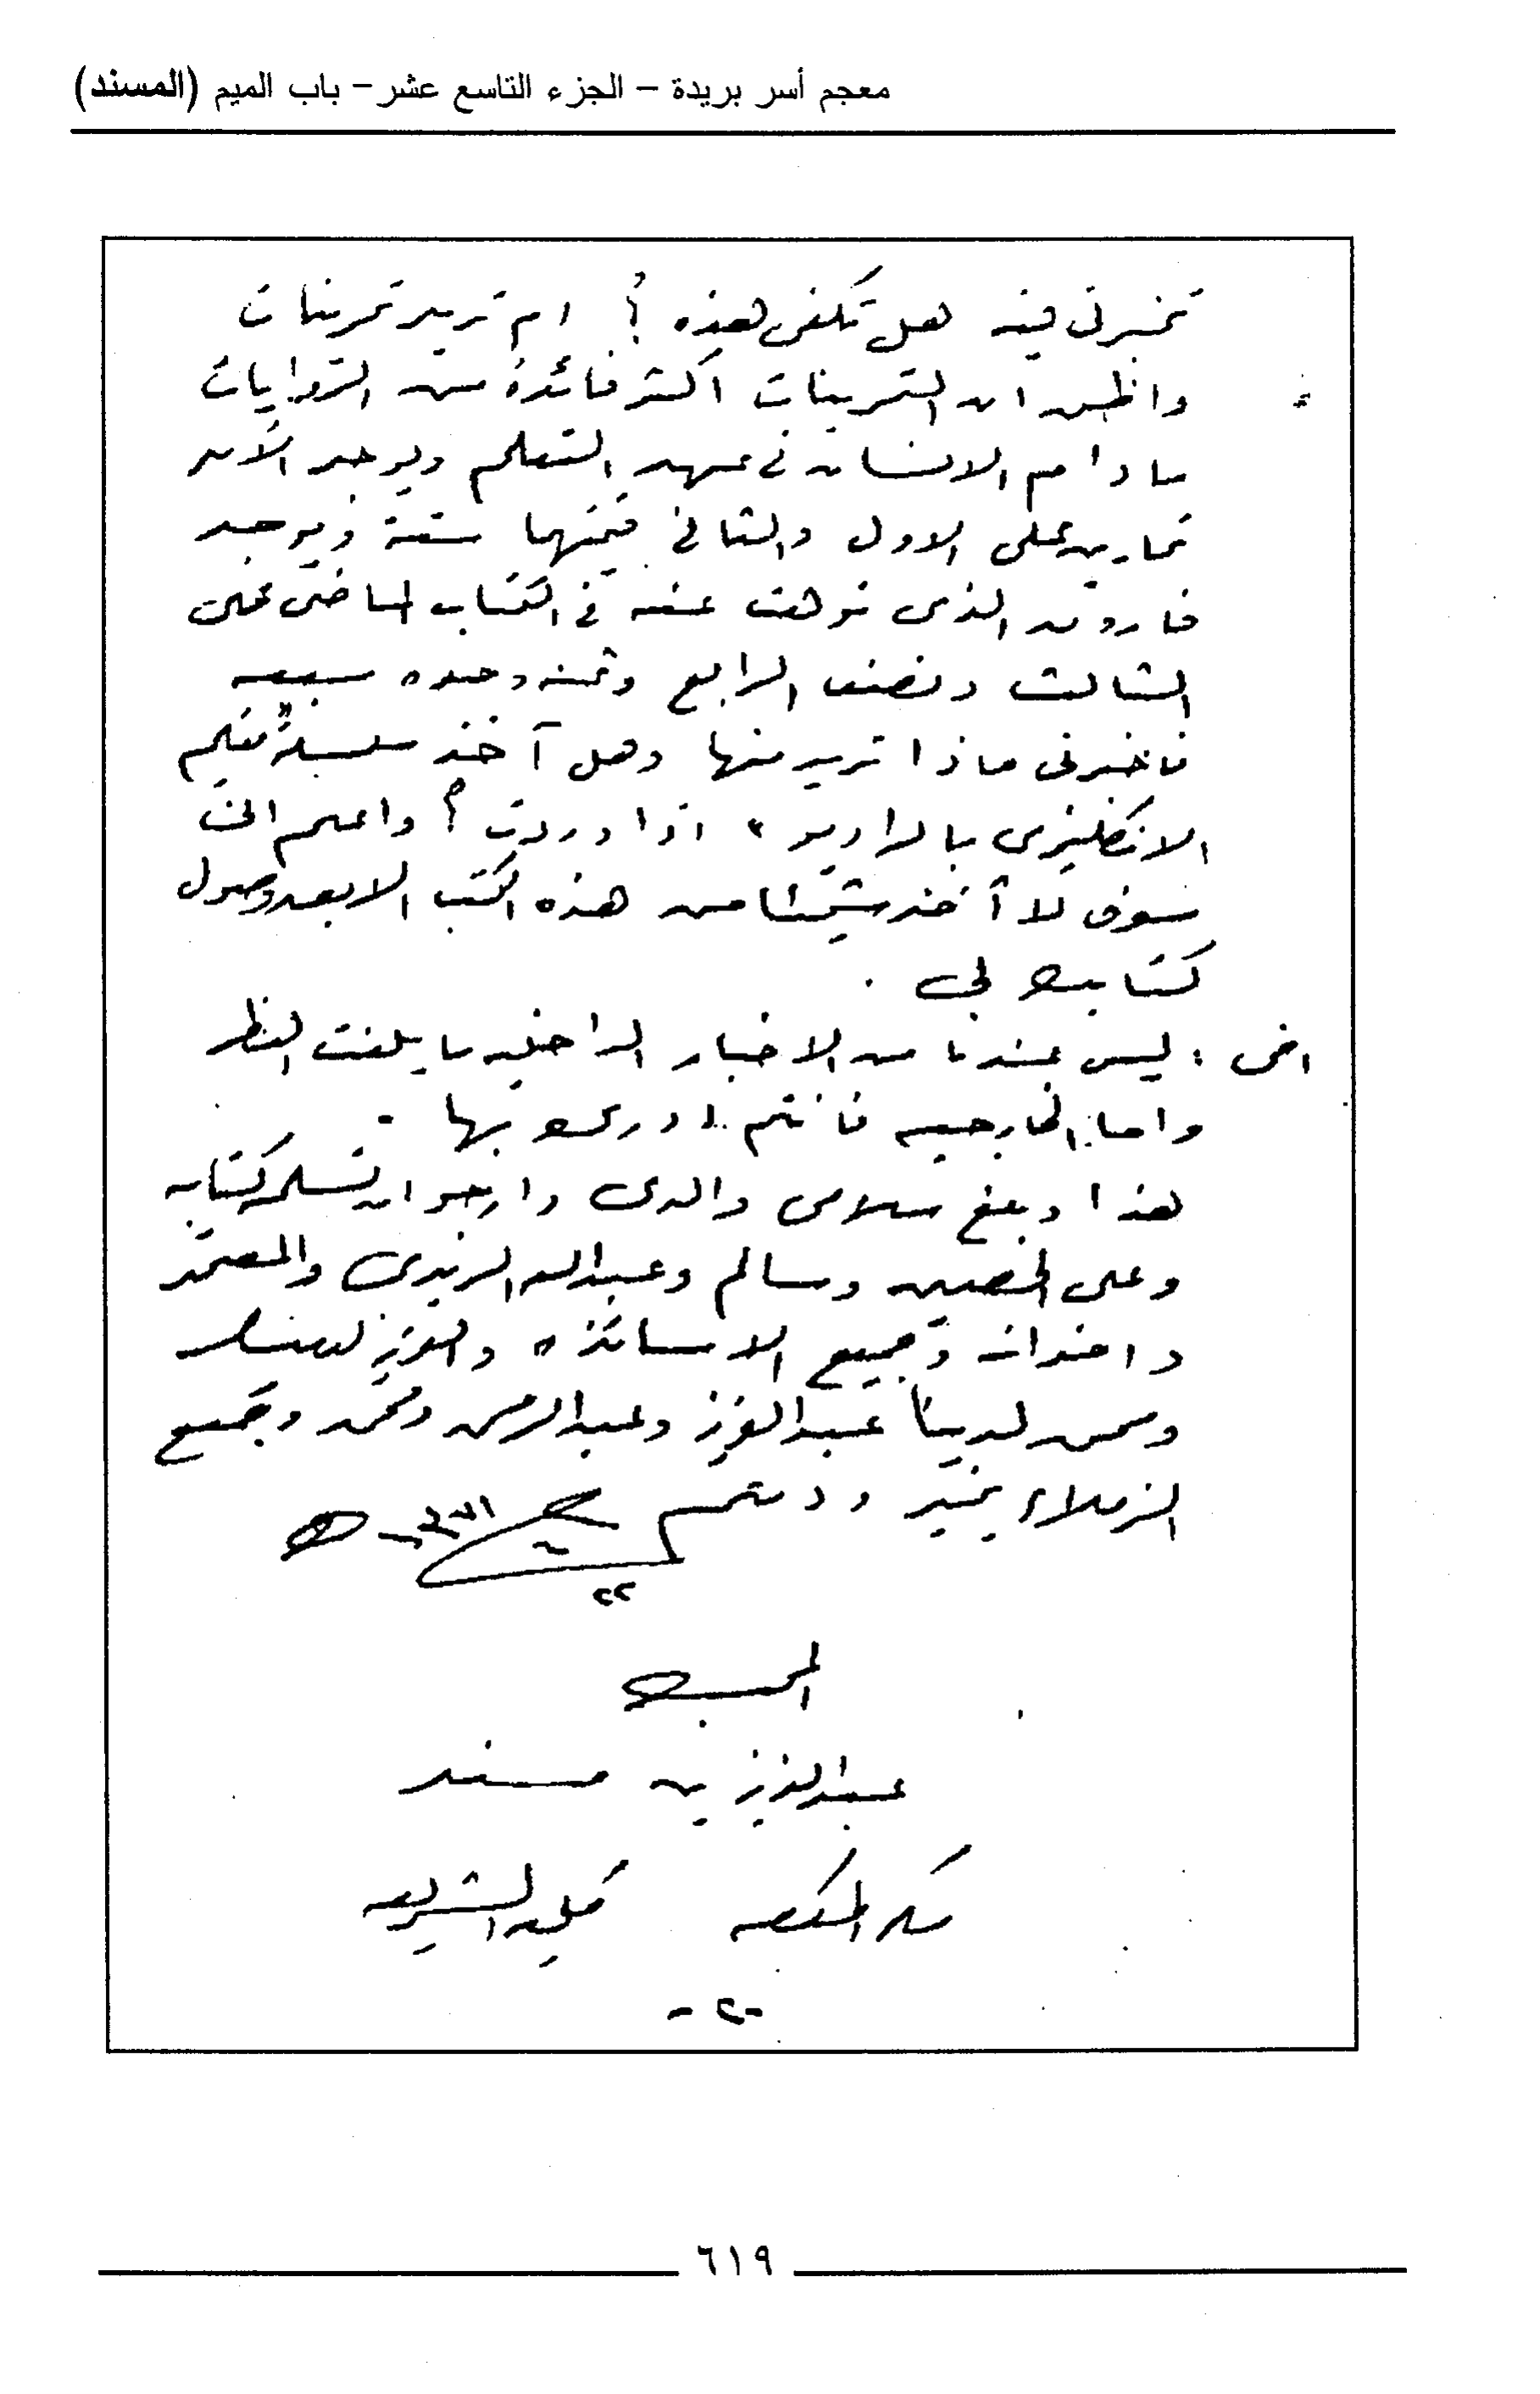 معجم أسر بريدة – الجزء التاسع عشر – باب الميم (المسند)
تخبرني فيه هل تكفي هذه ؟ ام تريد تمرينات
واظن ان التمرينات اكثر فائدة من الروايات
ما دام الانسان في عهد التعلم ويوجد الآن
تمارين على الاول والثاني قيمتها ستة ويوجد
فاروق الذي نوهت عنه في الكتاب الماضي على
الثالث ونصف الرابع وثمنه وحده سبعة
فاخبرني ماذا تريد منها وهل آخذ سلسلة تعليم
الانكليزي بالراديو اذا وردت ؟ واعلم انني
سوف لا آخذ شيئا من هذه الكتب الا بعد وصول
كتابك لي .
اخي : ليس عندنا من الاخبار الداخليه ما يلفت النظر
واما الخارجيه فانتم ادرى بها -
هذا وبلغ سلامي والدي وارجو ان تسلم كتابه
وعلى الحصين وسالم وعبدالله الزيدي والمعتمد
واخوانه وجميع الاساتذه والعزيز
ومن لدينا عبدالعزيز وعبدالرحمن ومحمد وجميع
الزملاء بخير ودمتم
٢٢
المحب
عبدالعزيز بن مسند
مكه المكرمه كليه الشريعه
-٢-
٦١٩